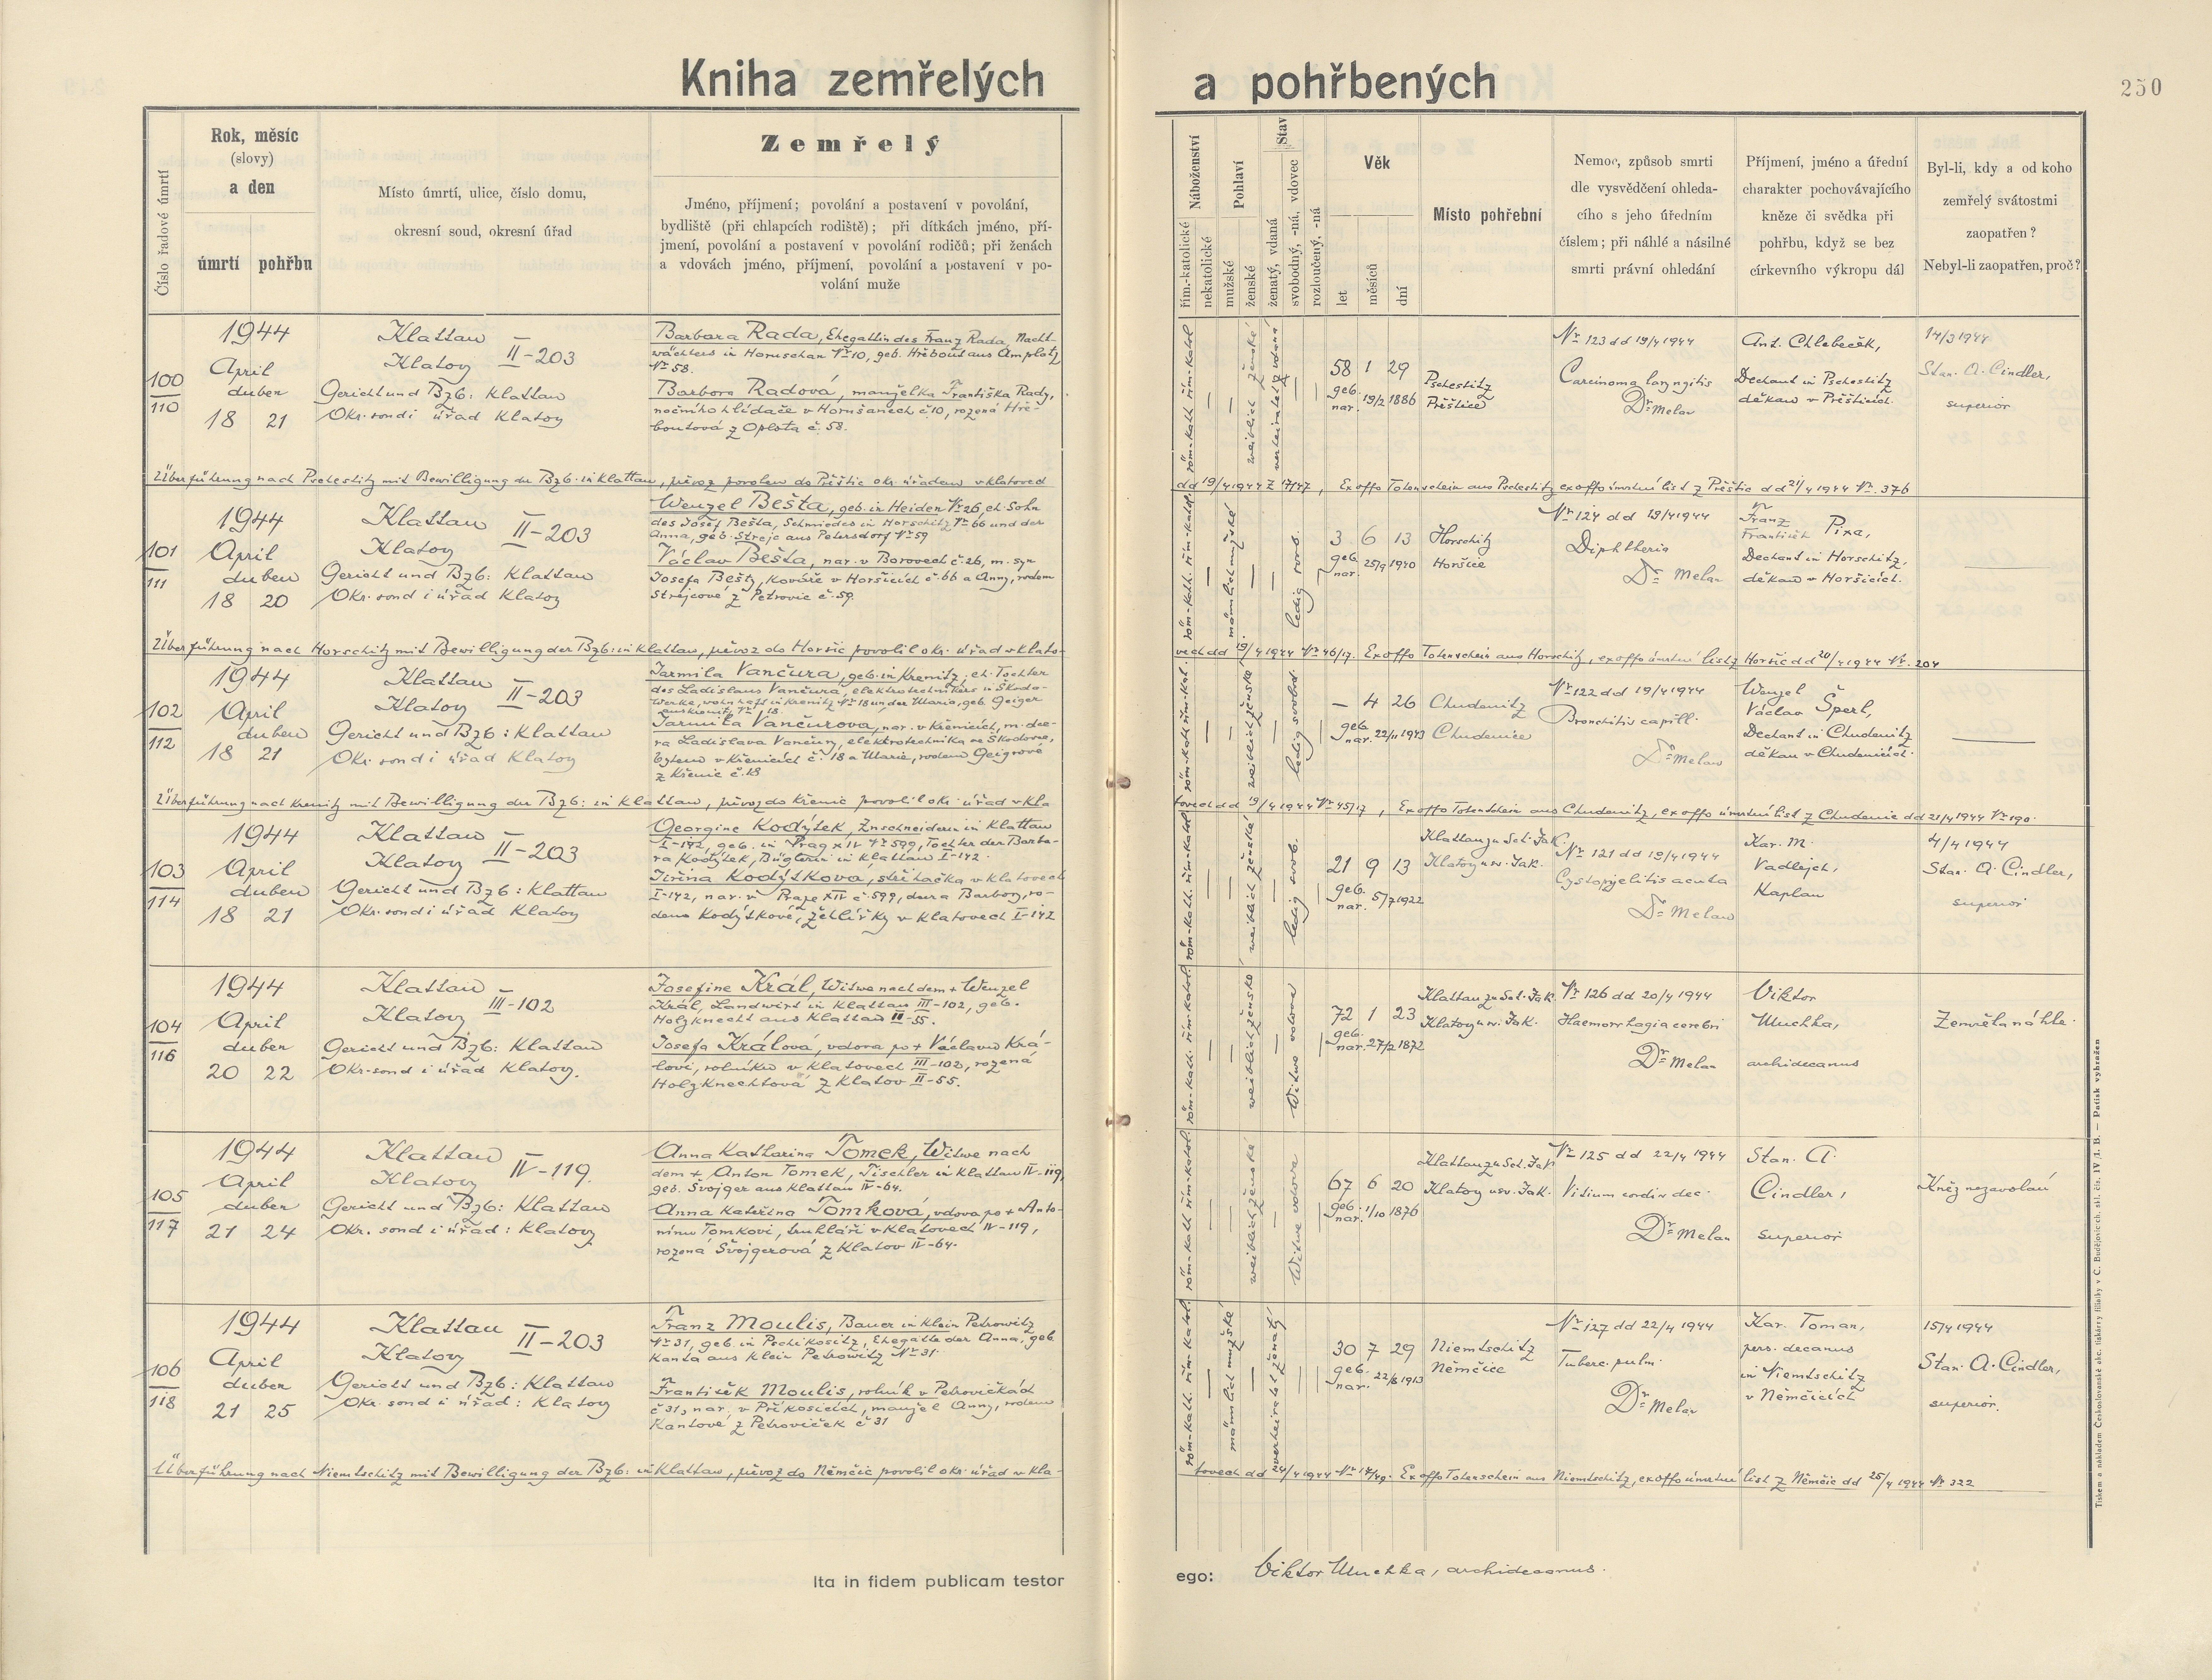 Kniha zemřelých a pohřbených
250
Číslo řadové úmrtí
Rok, měsíc
(slovy)
a den
úmrtí pohřbu
Místo úmrtí, ulice, číslo domu,
okresní soud, okresní úřad
Zemřelý
Jméno, příjmení; povolání a postavení v povolání,
bydliště (při chlapcích rodiště); při dítkách jméno, pří-
jmení, povolání a postavení v povolání rodičů; při ženách
a vdovách jméno, příjmení, povolání a postavení v po-
volání muže
Náboženství
řím.-katolické
nekatolické
Pohlaví
mužské
ženské
Stav
ženatý, vdaná
svobodný, -ná, vdovec
rozloučený, -ná
Věk
let
měsíců
dní
Místo pohřební
Nemoc, způsob smrti
dle vysvědčení ohleda-
cího s jeho úředním
číslem; při náhlé a násilné
smrti právní ohledání
Příjmení, jméno a úřední
charakter pochovávajícího
kněze či svědka při
pohřbu, když se bez
církevního výkropu dál
Byl-li, kdy a od koho
zemřelý svátostmi
zaopatřen?
Nebyl-li zaopatřen, proč?
100
110
1944
April
duben
18 21
Klattau
Klatovy II-203
Gericht und Bzb: Klattau
Okr. soud i úřad Klatovy
Barbara Rada, Ehegattin des Franz Rada, Nacht-
wächters in Hornschan Nr 10, geb. Hřebout aus Amplatz
Nr 58.
Barbora Radová, manželka Františka Rady,
nočního hlídače v Horušanech č 10, rozená Hře-
boutová z Oplota č. 58.
röm-kath. řím-katol
weiblich ženské
verheiratet vdaná
58 1 29
geb.
nar. 19/2 1886
Pschestitz
Přeštice
Nr 123 dd 19/4 1944
Carcinoma laryngitis
Dr Melan
Ant. Chlebeček,
Dechant in Pschestitz
děkan v Přešticích.
14/3 1944
Stan. A. Cindler,
superior
Überführung nach Pschestitz mit Bewilligung der Bzb. in Klattau, převoz povolen do Přeštic okr. úřadem v Klatovech
dd 19/4 1944 Z 17/47, Ex offo Totenschein aus Pschestitz ex offo úmrtní list z Přeštic dd 21/4 1944 Nr. 376
101
111
1944
April
duben
18 20
Klattau
Klatovy II-203
Gericht und Bzb: Klattau
Okr. soud i úřad Klatovy
Wenzel Bešta, geb. in Heiden Nr 26, eh. Sohn
des Josef Bešta, Schmiedes in Horschitz Nr 66 und der
Anna, geb. Strejc aus Petersdorf Nr 59
Václav Bešta, nar. v Borovech č. 26, m. syn
Josefa Bešty, kováře v Horšicích č. 66 a Anny, rodem
Strejcové z Petrovic č. 59.
röm-kath. řím-katol.
männlich mužské
ledig svob.
3 6 13
geb.
nar. 25/9 1940
Horschitz
Horšice
Nr 124 dd 19/4 1944
Diphtheria
Dr Melan
Franz
František Pixa,
Dechant in Horschitz,
děkan v Horšicích.
Überführung nach Horschitz mit Bewilligung der Bzb: in Klattau, převoz do Horšic povolil okr. úřad v Klato-
vech dd 19/4 1944 Nr 46/17. Ex offo Totenschein aus Horschitz, ex offo úmrtní list z Horšic dd 20/4 1944 Nr. 204
102
112
1944
April
duben
18 21
Klattau
Klatovy II-203
Gericht und Bzb: Klattau
Okr. soud i úřad Klatovy
Jarmila Vančura, geb. in Krenitz, eh. Tochter
des Ladislaus Vančura, elektrotechnikers in Škoda-
Werke, wohnhaft in Krenitz Nr 18 und der Maria, geb. Geiger
aus Krenitz Nr 18.
Jarmila Vančurova, nar. v Křenicích, m. dce-
ra Ladislava Vančury, elektrotechnika ve Škodovce,
bytem v Křenicích č. 18 a Marie, rodem Geigrové
z Křenic č. 18
röm-kath řím-kat.
weiblich ženské
ledig svobod.
— 4 26
geb.
nar. 22/11 1943
Chudenitz
Chudenice
Nr 122 dd 19/4 1944
Bronchitis capill.
Dr Melan
Wenzel
Václav Šperl,
Dechant in Chudenitz
děkan v Chudenicích.
Überführung nach Krenitz mit Bewilligung der Bzb: in Klattau, převoz do Křenic povolil okr. úřad v Kla
tovech dd 19/4 1944 Nr 45/17, Ex offo Totenschein aus Chudenitz, ex offo úmrtní list z Chudenic dd 21/4 1944 Nr 190.
103
114
1944
April
duben
18 21
Klattau
Klatovy II-203
Gericht und Bzb: Klattau
Okr. soud i úřad Klatovy
Georgine Kodýtek, Zuschneiderin in Klattau
I-142, geb. in Prag XIV Nr 599, Tochter der Barba-
ra Kodýtek, Büglerin in Klattau I-142.
Jiřina Kodýtkova, střihačka v Klatovech
I-142, nar. v Praze XIV č. 599, dcera Barbory, ro-
dem Kodýtkové, žehlířky v Klatovech I-142
röm-kath. řím-katol
weiblich ženské
ledig svob.
21 9 13
geb.
nar. 5/7 1922
Klattau zu Sct. Jak.
Klatovy u sv. Jak.
Nr 121 dd 19/4 1944
Cystopyelitis acuta
Dr Melan
Kar. M.
Vadlejch,
Kaplan
4/4 1944
Stan. A. Cindler,
superior
104
116
1944
April
duben
20 22
Klattau
Klatovy III-102
Gericht und Bzb: Klattau
Okr. soud i úřad Klatovy.
Josefine Král, Witwe nach dem + Wenzel
Král, Landwirt in Klattau III-102, geb.
Holzknecht aus Klattau II-55.
Josefa Králová, vdova po + Václavu Krá-
lovi, rolníku v Klatovech III-102, rozená
Holzknechtová z Klatov II-55.
röm-kath. řím-katol.
weiblich ženské
Witwe vdova
72 1 23
geb.
nar. 27/2 1872
Klattau zu Sct. Jak.
Klatovy u sv. Jak.
Nr 126 dd 20/4 1944
Haemorrhagia cerebri
Dr Melan
Viktor
Muchka,
archidecanus
Zemřela náhle.
105
117
1944
April
duben
21 24
Klattau
Klatovy IV-119.
Gericht und Bzb: Klattau
Okr. soud i úřad: Klatovy
Anna Katharina Tomek, Witwe nach
dem + Anton Tomek, Tischler in Klattau IV-119,
geb. Švojger aus Klattau IV-64.
Anna Kateřina Tomková, vdova po + Anto-
nínu Tomkovi, truhláři v Klatovech IV-119,
rozená Švojgerová z Klatov IV-64.
röm-kath řím-katol.
weiblich ženské
Witwe vdova
67 6 20
geb.
nar. 1/10 1876
Klattau zu Sct. Jak
Klatovy u sv. Jak.
Nr 125 dd 22/4 1944
Vitium cordis dec.
Dr Melan
Stan. A.
Cindler,
superior
Kněz nezavolán
106
118
1944
April
duben
21 25
Klattau
Klatovy II-203
Gericht und Bzb: Klattau
Okr. soud i úřad: Klatovy
Franz Moulis, Bauer in Klein Petrowitz
Nr 31, geb. in Pschikositz, Ehegatte der Anna, geb.
Kanta aus Klein Petrowitz Nr 31.
František Moulis, rolník v Petrovičkách
č 31, nar. v Příkosicích, manžel Anny, rodem
Kantové z Petroviček č 31
röm-kath. řím-katol.
männlich mužské
verheiratet ženatý
30 7 29
geb.
nar. 22/8 1913
Niemtschitz
Němčice
Nr 127 dd 22/4 1944
Tuberc. pulm.
Dr Melan
Kar. Toman,
pers. decanus
in Niemtschitz
v Němčicích
15/4 1944
Stan. A. Cindler,
superior.
Überführung nach Niemtschitz mit Bewilligung der Bzb: in Klattau, převoz do Němčic povolil okr. úřad v Kla-
tovech dd 24/4 1944 Nr 17/49. Ex offo Totenschein aus Niemtschitz, ex offo úmrtní list z Němčic dd 25/4 1944 Nr 322
Ita in fidem publicam testor ego: Viktor Muchka, archidecanus.
Tiskem a nákladem Československé akc. tiskárny filiálky v Č. Budějovicích, skl. čís. IV /1. B. — Patisk vyhražen